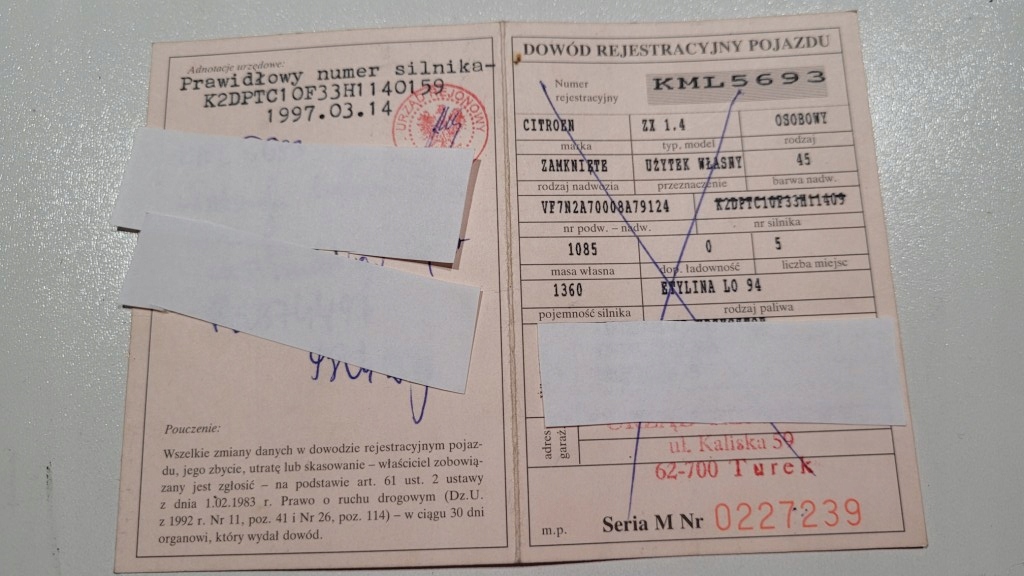 Adnotacje urzędowe:
Prawidłowy numer silnika-
K2DPTC10F33H1140159
1997.03.14
URZĄD REJONOWY
Pouczenie:
Wszelkie zmiany danych w dowodzie rejestracyjnym pojaz-
du, jego zbycie, utratę lub skasowanie – właściciel zobowią-
zany jest zgłosić – na podstawie art. 61 ust. 2 ustawy
z dnia 1.02.1983 r. Prawo o ruchu drogowym (Dz.U.
z 1992 r. Nr 11, poz. 41 i Nr 26, poz. 114) – w ciągu 30 dni
organowi, który wydał dowód.
DOWÓD REJESTRACYJNY POJAZDU
Numer
rejestracyjny
KML5693
CITROEN ZX 1.4 OSOBOWY
marka typ, model rodzaj
ZAMKNIĘTE UŻYTEK WŁASNY 45
rodzaj nadwozia przeznaczenie barwa nadw.
VF7N2A70008A79124 K2DPTC10F33H11405
nr podw. – nadw. nr silnika
1085 0 5
masa własna dop. ładowność liczba miejsc
1360 ETYLINA LO 94
pojemność silnika rodzaj paliwa
adres
garaż
ul. Kaliska 59
62-700 Turek
m.p. Seria M Nr 0227239